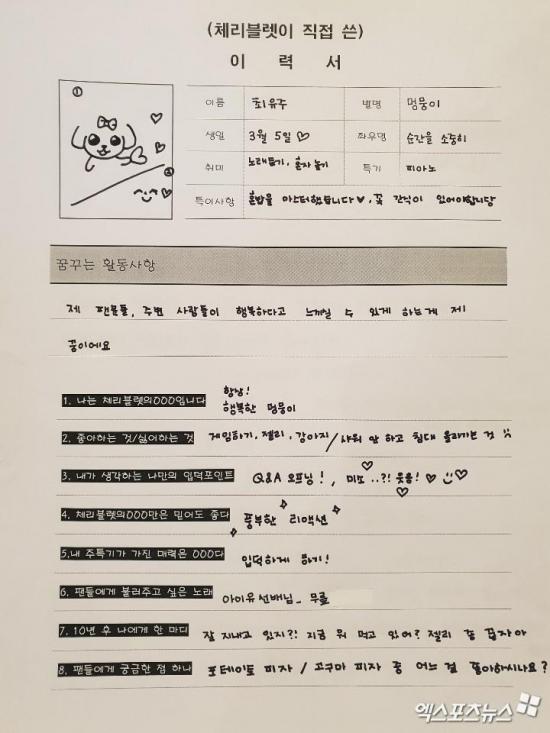 (체리블렛이 직접 쓴)
이 력 서
① ②
이름 최유주 별명 멍뭉이
생일 3월 5일♡ 좌우명 순간을 소중히
취미 노래듣기, 혼자 놀기 특기 피아노
특이사항 혼밥을 마스터했습니다♥, 꼭 간식이 있어야합니당
꿈꾸는 활동사항
제 팬분들, 주변 사람들이 행복하다고 느끼실 수 있게 하는게 제
꿈이에요
1. 나는 체리블렛의OOO입니다 항상! 행복한 멍뭉이
2. 좋아하는 것/싫어하는 것 게임하기, 젤리, 강아지/샤워 안 하고 침대 올라가는 것
3. 내가 생각하는 나만의 입덕포인트 Q&A 오프닝!, 미소..?! 웃음!♡
4. 체리블렛의OOO만은 믿어도 좋다 풍부한 리액션
5.내 주특기가 가진 매력은 OOO다 입덕하게 하기!
6. 팬들에게 불러주고 싶은 노래 아이유선배님_무릎
7. 10년 후 나에게 한 마디 잘 지내고 있지?! 지금 뭐 먹고 있어? 젤리 좀
8. 팬들에게 궁금한 점 하나 포테이토 피자 / 고구마 피자 중 어느 걸 좋아하시나요?
엑스포츠뉴스